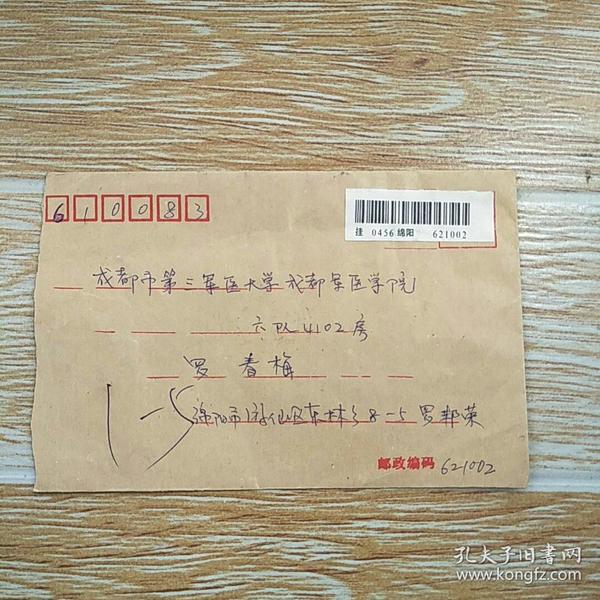 610083
挂 0456 绵阳 621002
成都市第三军医大学成都军医学院
六队4102房
罗春梅
绵阳市游仙区东林乡8-5 罗邦荣
邮政编码 621002
孔夫子旧書网
www.kongfz.com